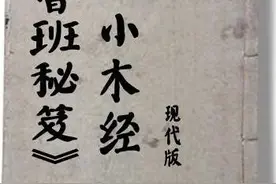 班秘笈》
小木经
现代版